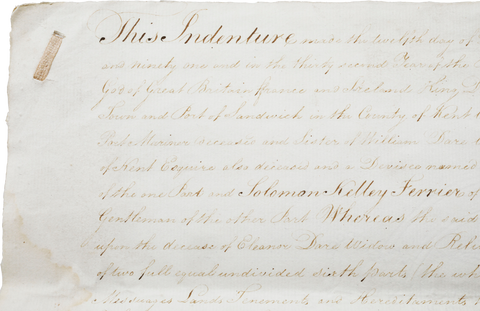 This Indenture made the twelfth day of
and ninety one and in the thirty second Year of the
God of Great Britain France and Ireland King D
Town and Port of Sandwich in the County of Kent
Mariner deceased and Sister of William Dare
of Kent Esquire also deceased and a Devisee named
of the one Part and Solomon Ferrier of
Gentleman of the other Part Whereas the said
upon the decease of Eleanor Dare Widow and Reli
of two full equal undivided sixth parts (the wh
Messuages Lands Tenements and Hereditaments